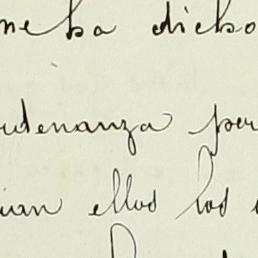 me ha dicho
rdenanza por
ian ellos los